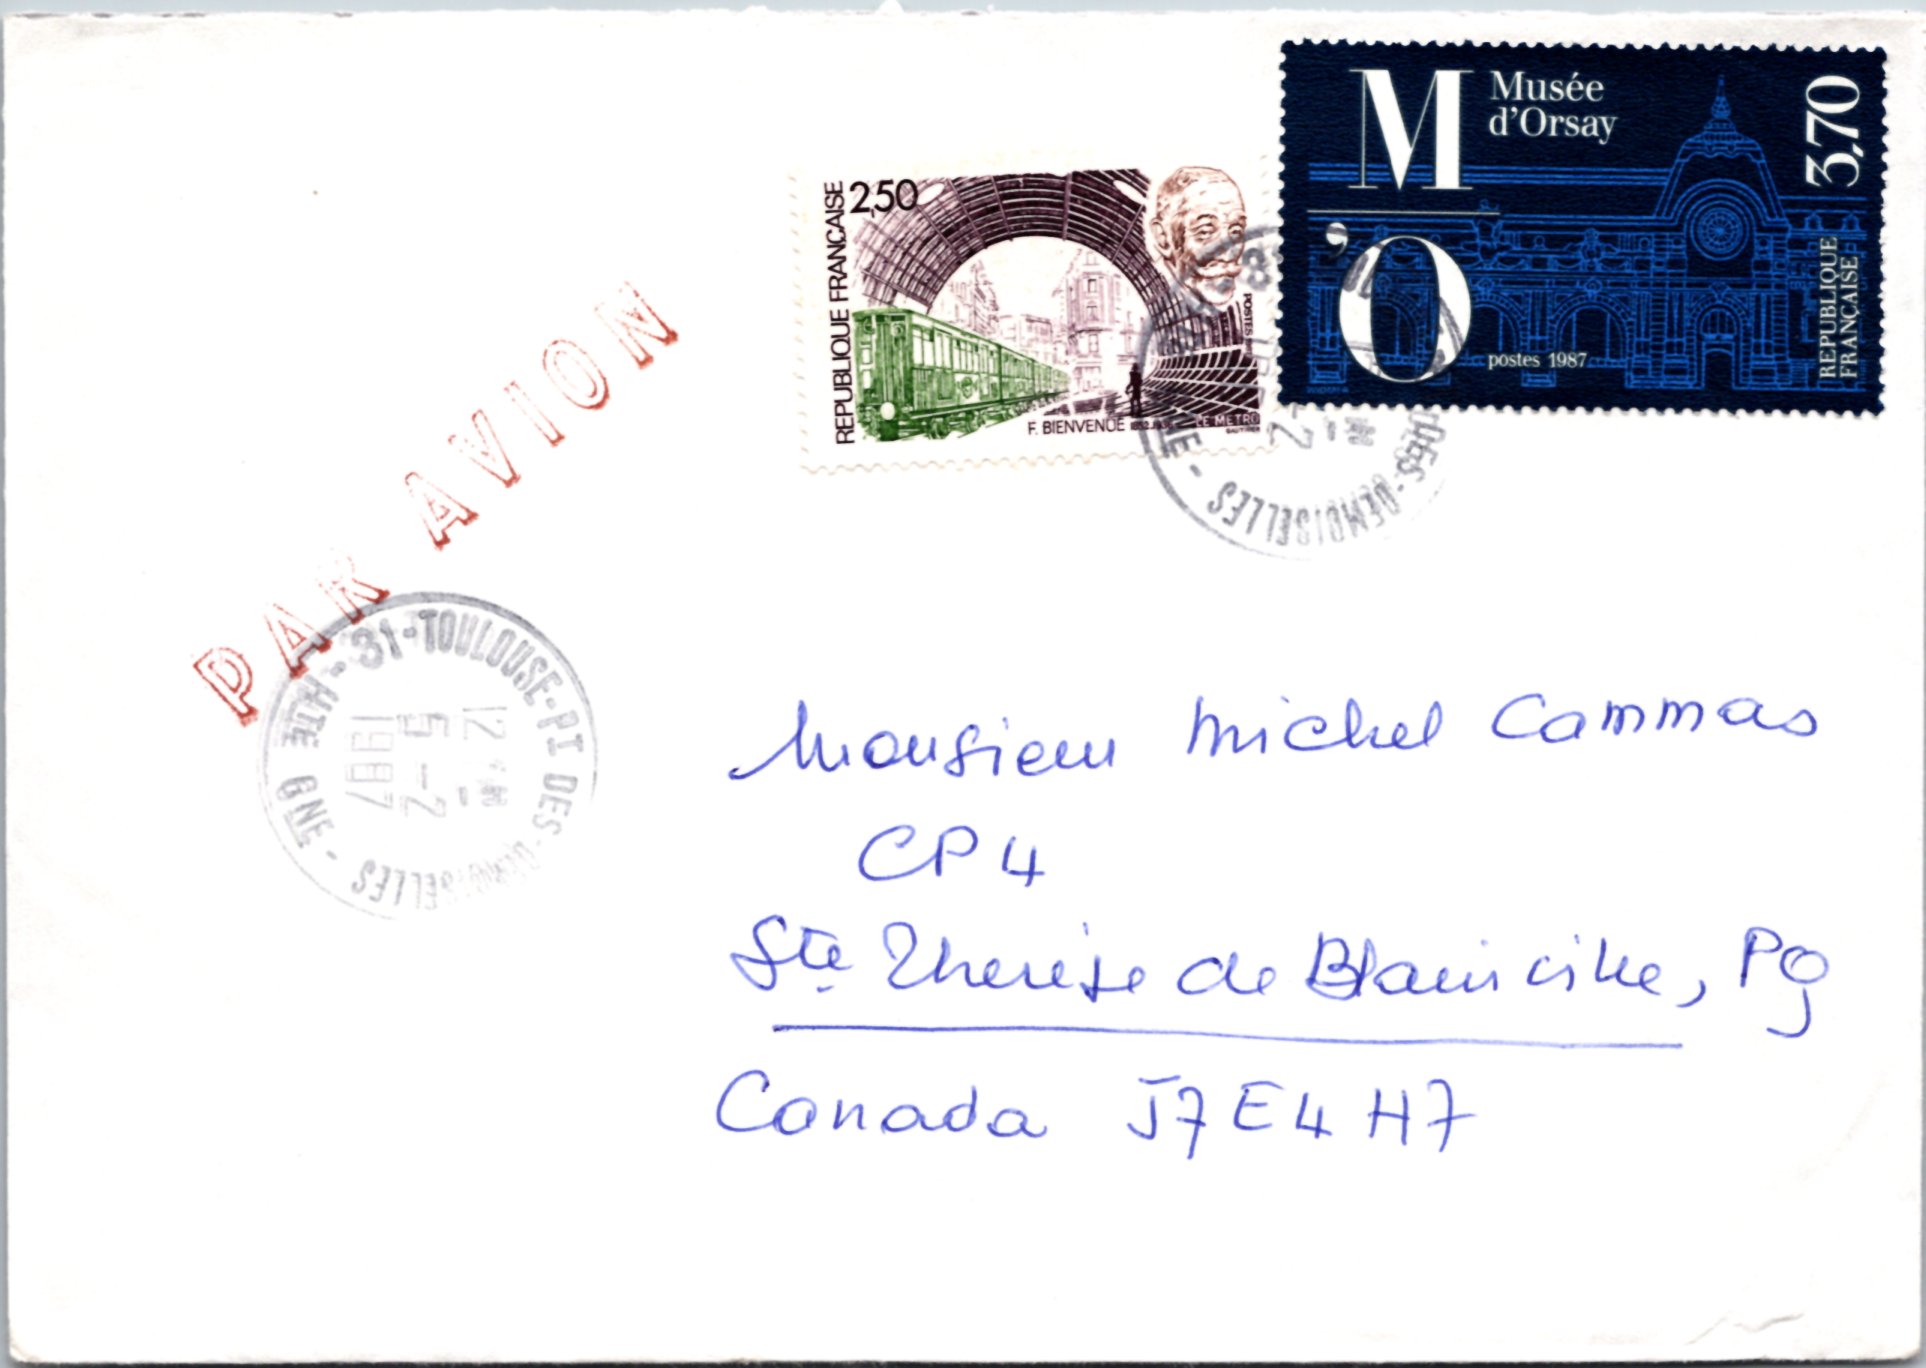 M
'O
Musée
d'Orsay
3,70
REPUBLIQUE
FRANÇAISE
postes 1987
2,50
REPUBLIQUE FRANÇAISE
POSTES
F. BIENVENUE 1852.1936 LE METRO
GAUTHIER
DES-DEMOISELLES - NE
PAR AVION
31-TOULOUSE-PI DES-DEMOISELLES - HTE GNE
12 H
5 - 2
1987
Monsieur Michel Cammas
CP 4
Ste Therese de Blainville, PQ
Canada J7E4H7